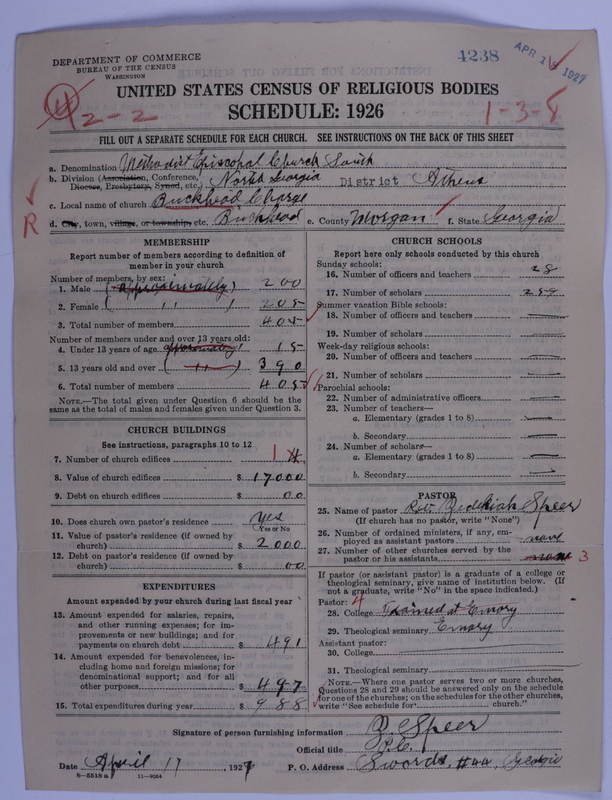 DEPARTMENT OF COMMERCE
BUREAU OF THE CENSUS
WASHINGTON
4238
APR 1 1927
UNITED STATES CENSUS OF RELIGIOUS BODIES
SCHEDULE: 1926
2-2
1-3-8
FILL OUT A SEPARATE SCHEDULE FOR EACH CHURCH. SEE INSTRUCTIONS ON THE BACK OF THIS SHEET
a. Denomination Methodist Episcopal Church South
b. Division (Association, Conference, Diocese, Presbytery, Synod, etc.) North Georgia District Athens
c. Local name of church Buckhead Charge
d. City, town, village, or township, etc. Buckhead e. County Morgan f. State Georgia
R
MEMBERSHIP
Report number of members according to definition of
member in your church
Number of members, by sex:
1. Male (approximately) 200
2. Female ( " " ) 205
3. Total number of members 405
Number of members under and over 13 years old:
4. Under 13 years of age approximately 15
5. 13 years old and over ( " ) 390
6. Total number of members 405
NOTE.—The total given under Question 6 should be
same as the total of males and females given under Question 3.
CHURCH BUILDINGS
See instructions, paragraphs 10 to 12
7. Number of church edifices 1
8. Value of church edifices $ 17000
9. Debt on church edifices $ 00
10. Does church own pastor's residence Yes
Yes or No
11. Value of pastor's residence (if owned by
church) $ 2000
12. Debt on pastor's residence (if owned by
church) $ 00
EXPENDITURES
Amount expended by your church during last fiscal year
13. Amount expended for salaries, repairs,
and other running expenses; for im-
provements or new buildings; and for
payments on church debt $ 491
14. Amount expended for benevolences, in-
cluding home and foreign missions; for
denominational support; and for all
other purposes $ 497
15. Total expenditures during year $ 988
CHURCH SCHOOLS
Report here only schools conducted by this church
Sunday schools:
16. Number of officers and teachers 28
17. Number of scholars 259
Summer vacation Bible schools:
18. Number of officers and teachers
19. Number of scholars
Week-day religious schools:
20. Number of officers and teachers
21. Number of scholars
Parochial schools:
22. Number of administrative officers
23. Number of teachers—
a. Elementary (grades 1 to 8)
b. Secondary
24. Number of scholars—
a. Elementary (grades 1 to 8)
b. Secondary
PASTOR
25. Name of pastor Rev. Zedekiah Speer
(If church has no pastor, write "None")
26. Number of ordained ministers, if any, em-
ployed as assistant pastors none
27. Number of other churches served by the
pastor or his assistants none 3
If pastor (or assistant pastor) is a graduate of a college or
theological seminary, give name of institution below. (If
not a graduate, write "No" in the space indicated.)
Pastor: 4
28. College Trained at Emory
29. Theological seminary Emory
Assistant pastor:
30. College
31. Theological seminary
NOTE.—Where one pastor serves two or more churches,
Questions 28 and 29 should be answered only on the schedule
for one of the churches; on the schedules for the other churches,
write "See schedule for church."
Signature of person furnishing information Z. Speer
Official title P.C.
Date April 17, 1927 P. O. Address Swords, Georgia
8—5518 a 11—9034